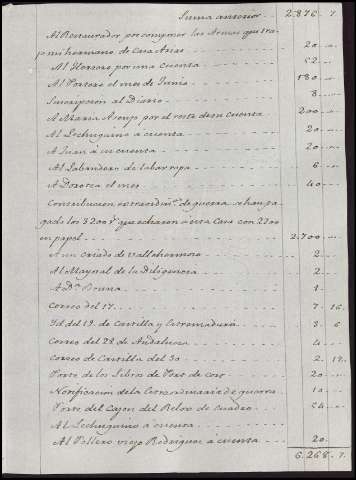 Suma anterior 2.876. 7.
Al Restaurador por componer las Armas que tra-
jo mi hermano de Casa Arias 20
Al Herrero por una cuenta 52
Al Portero el mes de Junio 180
Suscripcion al Diario 8
A Maria Asenjo por el resto de su cuenta 200
Al Lechuguino a cuenta 20
A Juan a su cuenta 20
Al Labandero de labar ropa 6
A Dorotea el mes 40
Contribucion extraordin.ª de guerra se han pa-
gado los 3200 r.s que echaron a esta Casa con 2200
en papel 2.700
A un criado de Vallehermoso 2
Al Mayoral de la Diligencia 2
A D.ª Bruna 1
Correo del 17 7. 16
Id del 19 de Castilla y Estremadura 3. 6
Correo del 28 de Andalucia 4
Correo de Castilla del 30 2. 12
Porte de los Libros de 20
Notificacion de la Extraordinaria de guerra 10
Porte del Cajon del Relox de Cuadro 54
Al Lechuguino a cuenta
Al Pollero viejo Rodriguez a cuenta 20
6.268. 7.